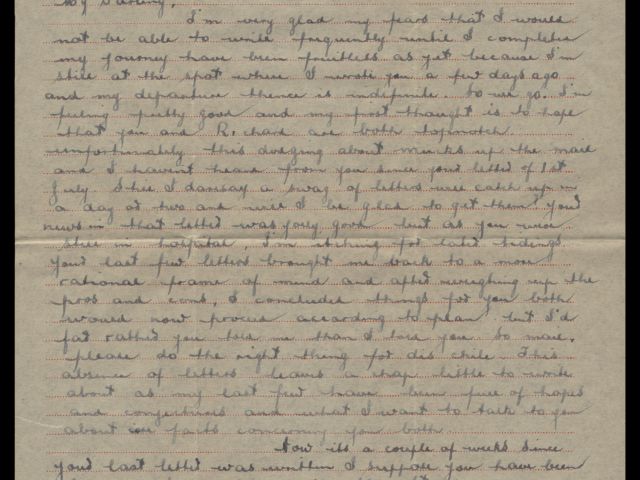 My Darling,
I'm very glad my fears that I would
not be able to write frequently until I completed
my journey have been fruitless as yet because I'm
still at the spot where I wrote you a few days ago
and my departure thence is indefinite. So we go. I'm
feeling pretty good and my first thought is to hope
that you and Richard are both topnotch.
Unfortunately this dodging about mucks up the mail
and I haven't heard from you since your letter of 1st
July. Still I daresay a swag of letters will catch up in
a day or two and will I be glad to get them? Your
news in that letter was jolly good but as you were
still in hospital, I'm itching for later tidings.
Your last few letters brought me back to a more
rational frame of mind and after weighing up the
pros and cons, I concluded things for you both
would now proceed according to plan, but I'd
far rather you told me than I told you. So mail,
please do the right thing for dis chile. This
absence of letters leaves a chap little to write
about as my last few have been full of hopes
and conjectures and what I want to talk to you
about are facts concerning you both.
Now its a couple of weeks since
your last letter was written I suppose you have been